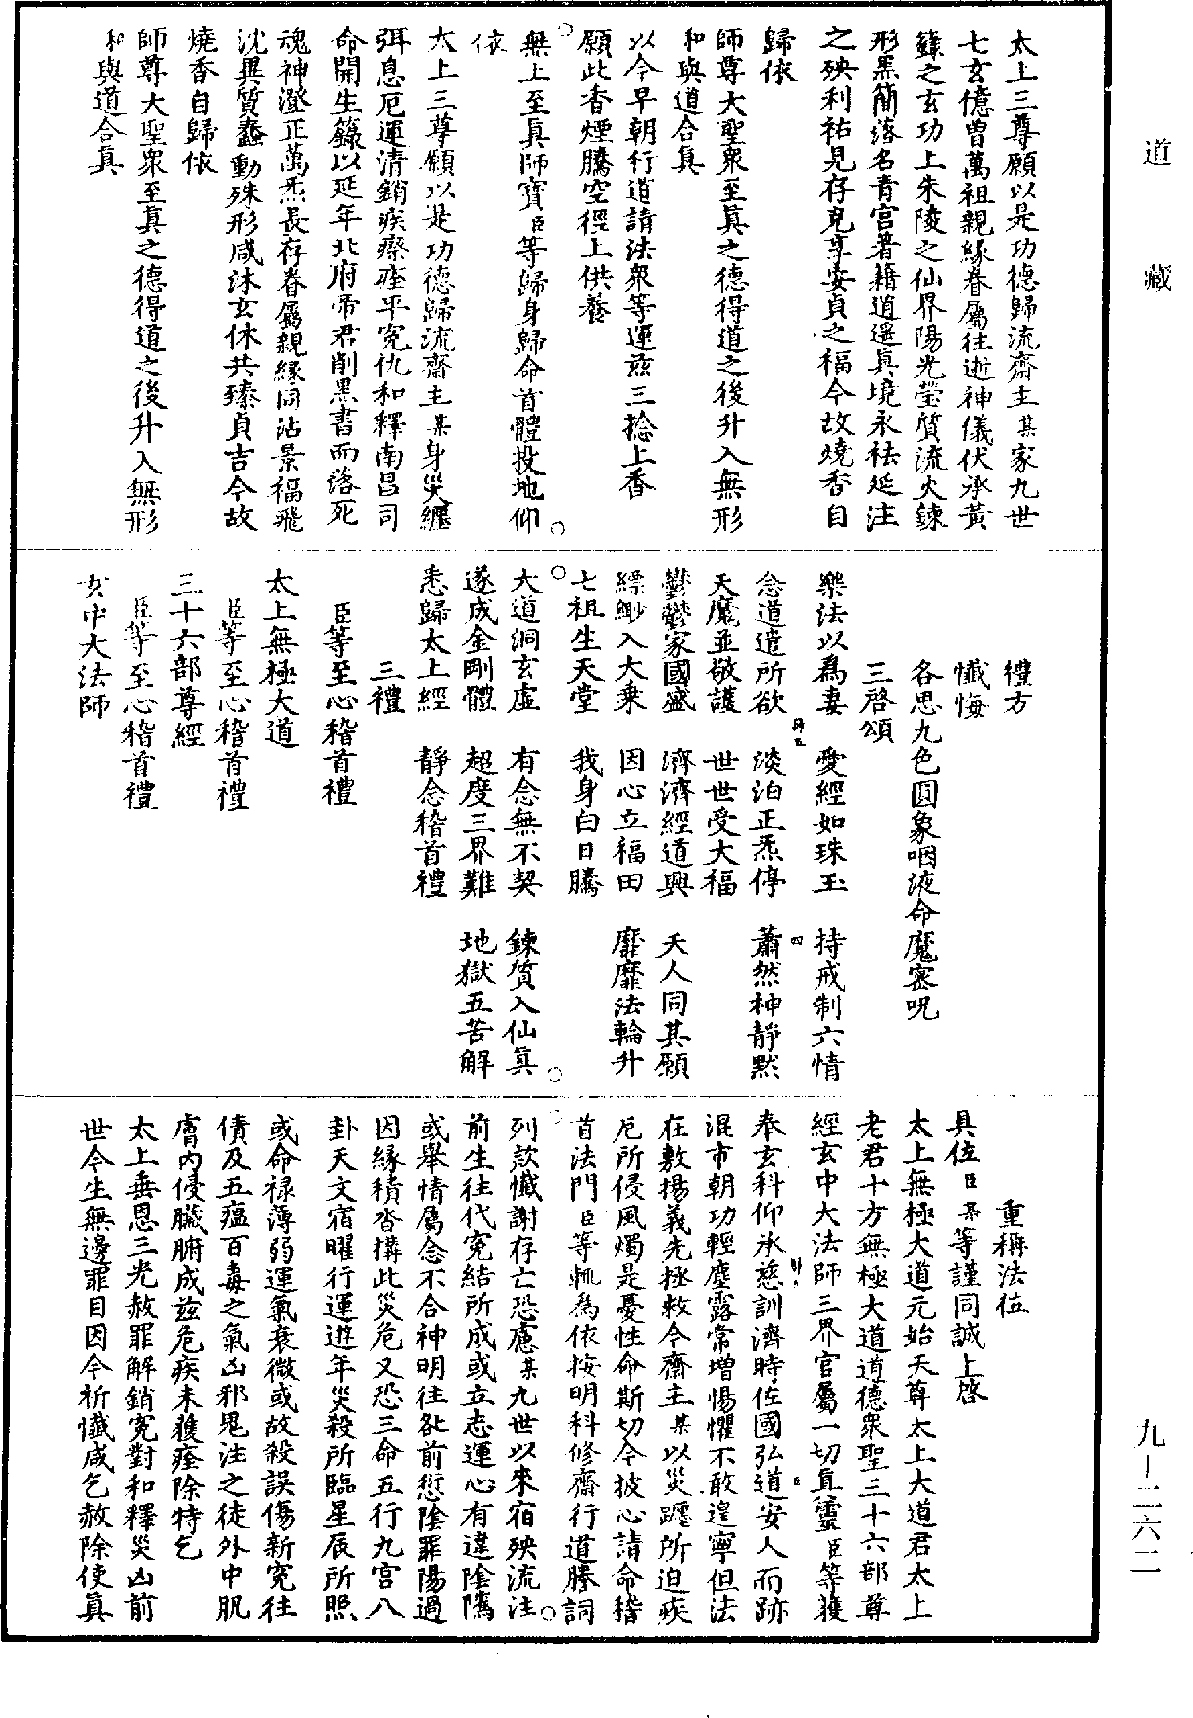 道藏
太上三尊願以是功德歸流齋主某家九世
七玄億曾萬祖親緣眷屬往逝神儀伏承黃
籙之玄功上朱陵之仙界陽光瑩質流火鍊
形黑簡落名青宮著籍逍遙真境永袪延注
之殃利祐見存克享安貞之福今故燒香自
歸依
師尊大聖眾至真之德得道之後升入無形
和與道合真
以今早朝行道請法眾等運茲三捻上香
願此香煙騰空徑上供養
無上至真師寶臣等歸身歸命首體投地仰
依
太上三尊願以是功德歸流齋主某身災纏
弭息厄運清銷疾瘵痊平冤仇和釋南昌司
命開生籙以延年北府帝君削黑書而落死
魂神澄正萬炁長存眷屬親緣同沾景福飛
沈異質蠢動殊形咸沐玄休共臻貞吉今故
燒香自歸依
師尊大聖眾至真之德得道之後升入無形
和與道合真
禮方
懺悔
各思九色圓象咽液命魔密呪
三啓頌
樂法以為妻　愛經如珠玉　持戒制六情
念道遣所欲　淡泊正炁停　蕭然神靜默
天魔並敬護　世世受大福
鬱鬱家國盛　濟濟經道興　天人同其願
縹緲入大乘　因心立福田　靡靡法輪升
七祖生天堂　我身白日騰
大道洞玄虛　有念無不契　鍊質入仙真
遂成金剛體　超度三界難　地獄五苦解
悉歸太上經　靜念稽首禮
三禮
臣等至心稽首禮
太上無極大道
臣等至心稽首禮
三十六部尊經
臣等至心稽首禮
玄中大法師
重稱法位
具位臣某等謹同誠上啓
太上無極大道元始天尊太上大道君太上
老君十方無極大道道德眾聖三十六部尊
經玄中大法師三界官屬一切真靈臣等獲
奉玄科仰承慈訓濟時佐國弘道安人而跡
混市朝功輕塵露常增惕懼不敢遑寧但法
在敷揚義先拯救今齋主某以災躔所迫疾
厄所侵風燭是憂性命斯切今披心請命稽
首法門臣等輒為依按明科修齋行道牓詞
列款懺謝存亡恐慮某九世以來宿殃流注
前生往代冤結所成或立志運心有違陰騭
或舉情屬念不合神明往咎前愆陰罪陽過
因緣積沓構此災危又恐三命五行九宮八
卦天文宿曜行運遊年災殺所臨星辰所照
或命祿薄弱運氣衰微或故殺誤傷新冤往
債及五瘟百毒之氣凶邪鬼注之徒外中肌
膚內侵臟腑成茲危疾未獲痊除特乞
太上垂恩三光赦罪解銷冤對和釋災凶前
世今生無邊罪目因今祈懺咸乞赦除使真
九-二六二